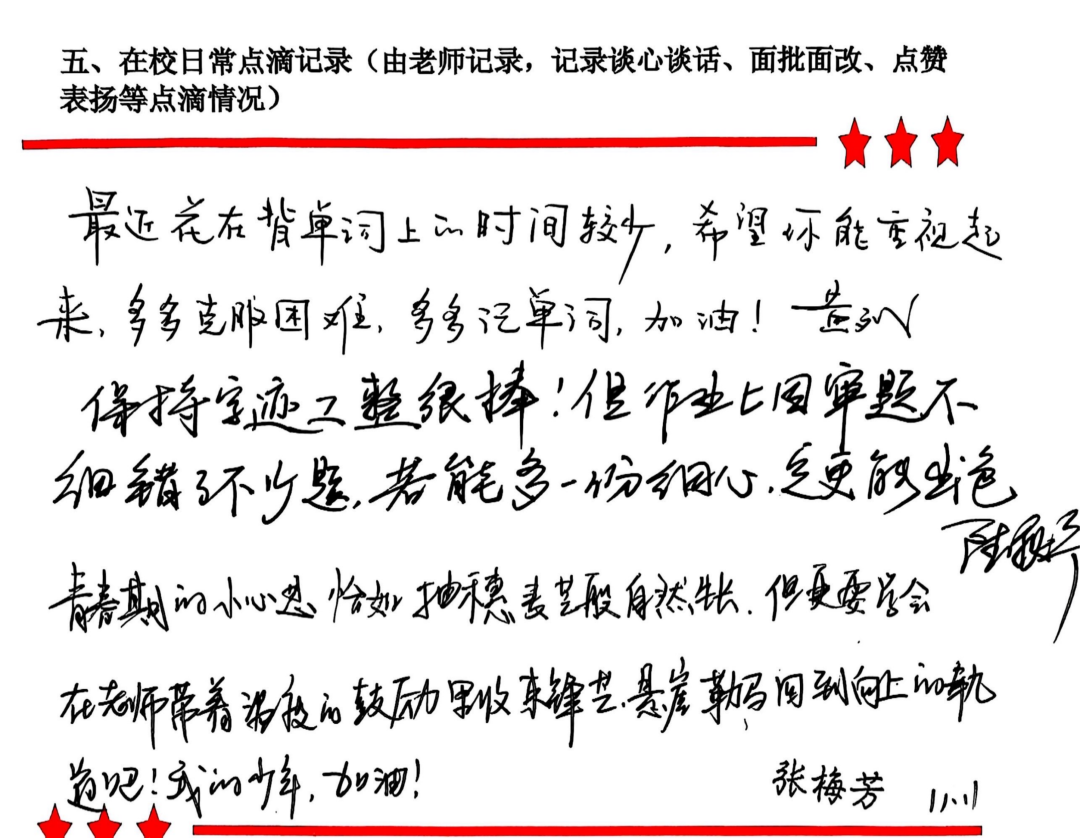 五、在校日常点滴记录（由老师记录，记录谈心谈话、面批面改、点赞
表扬等点滴情况）
最近花在背单词上的时间较少，希望你能重视起
来，多多克服困难，多多记单词，加油！ 黄
保持字迹工整很棒！但作业上因审题不
细错了不少题，若能多一份细心，定更能出色
陆
青春期的小心思恰如抽穗麦芒般自然生长，但更要学会
在老师带着温度的鼓励里收束锋芒，悬崖勒马回到向上的轨
道吧！我的少年，加油！ 张梅芳 11.11